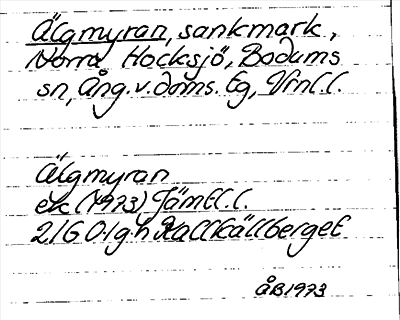 Älgmyran, sankmark,
Norra Hocksjö, Bodums
sn, Ång.v.doms. Eg, Vrnl.l.
Älgmyran
ek (1973) Jämtl.l.
21G 0-1g-h Kallkällberget
ÅB1973